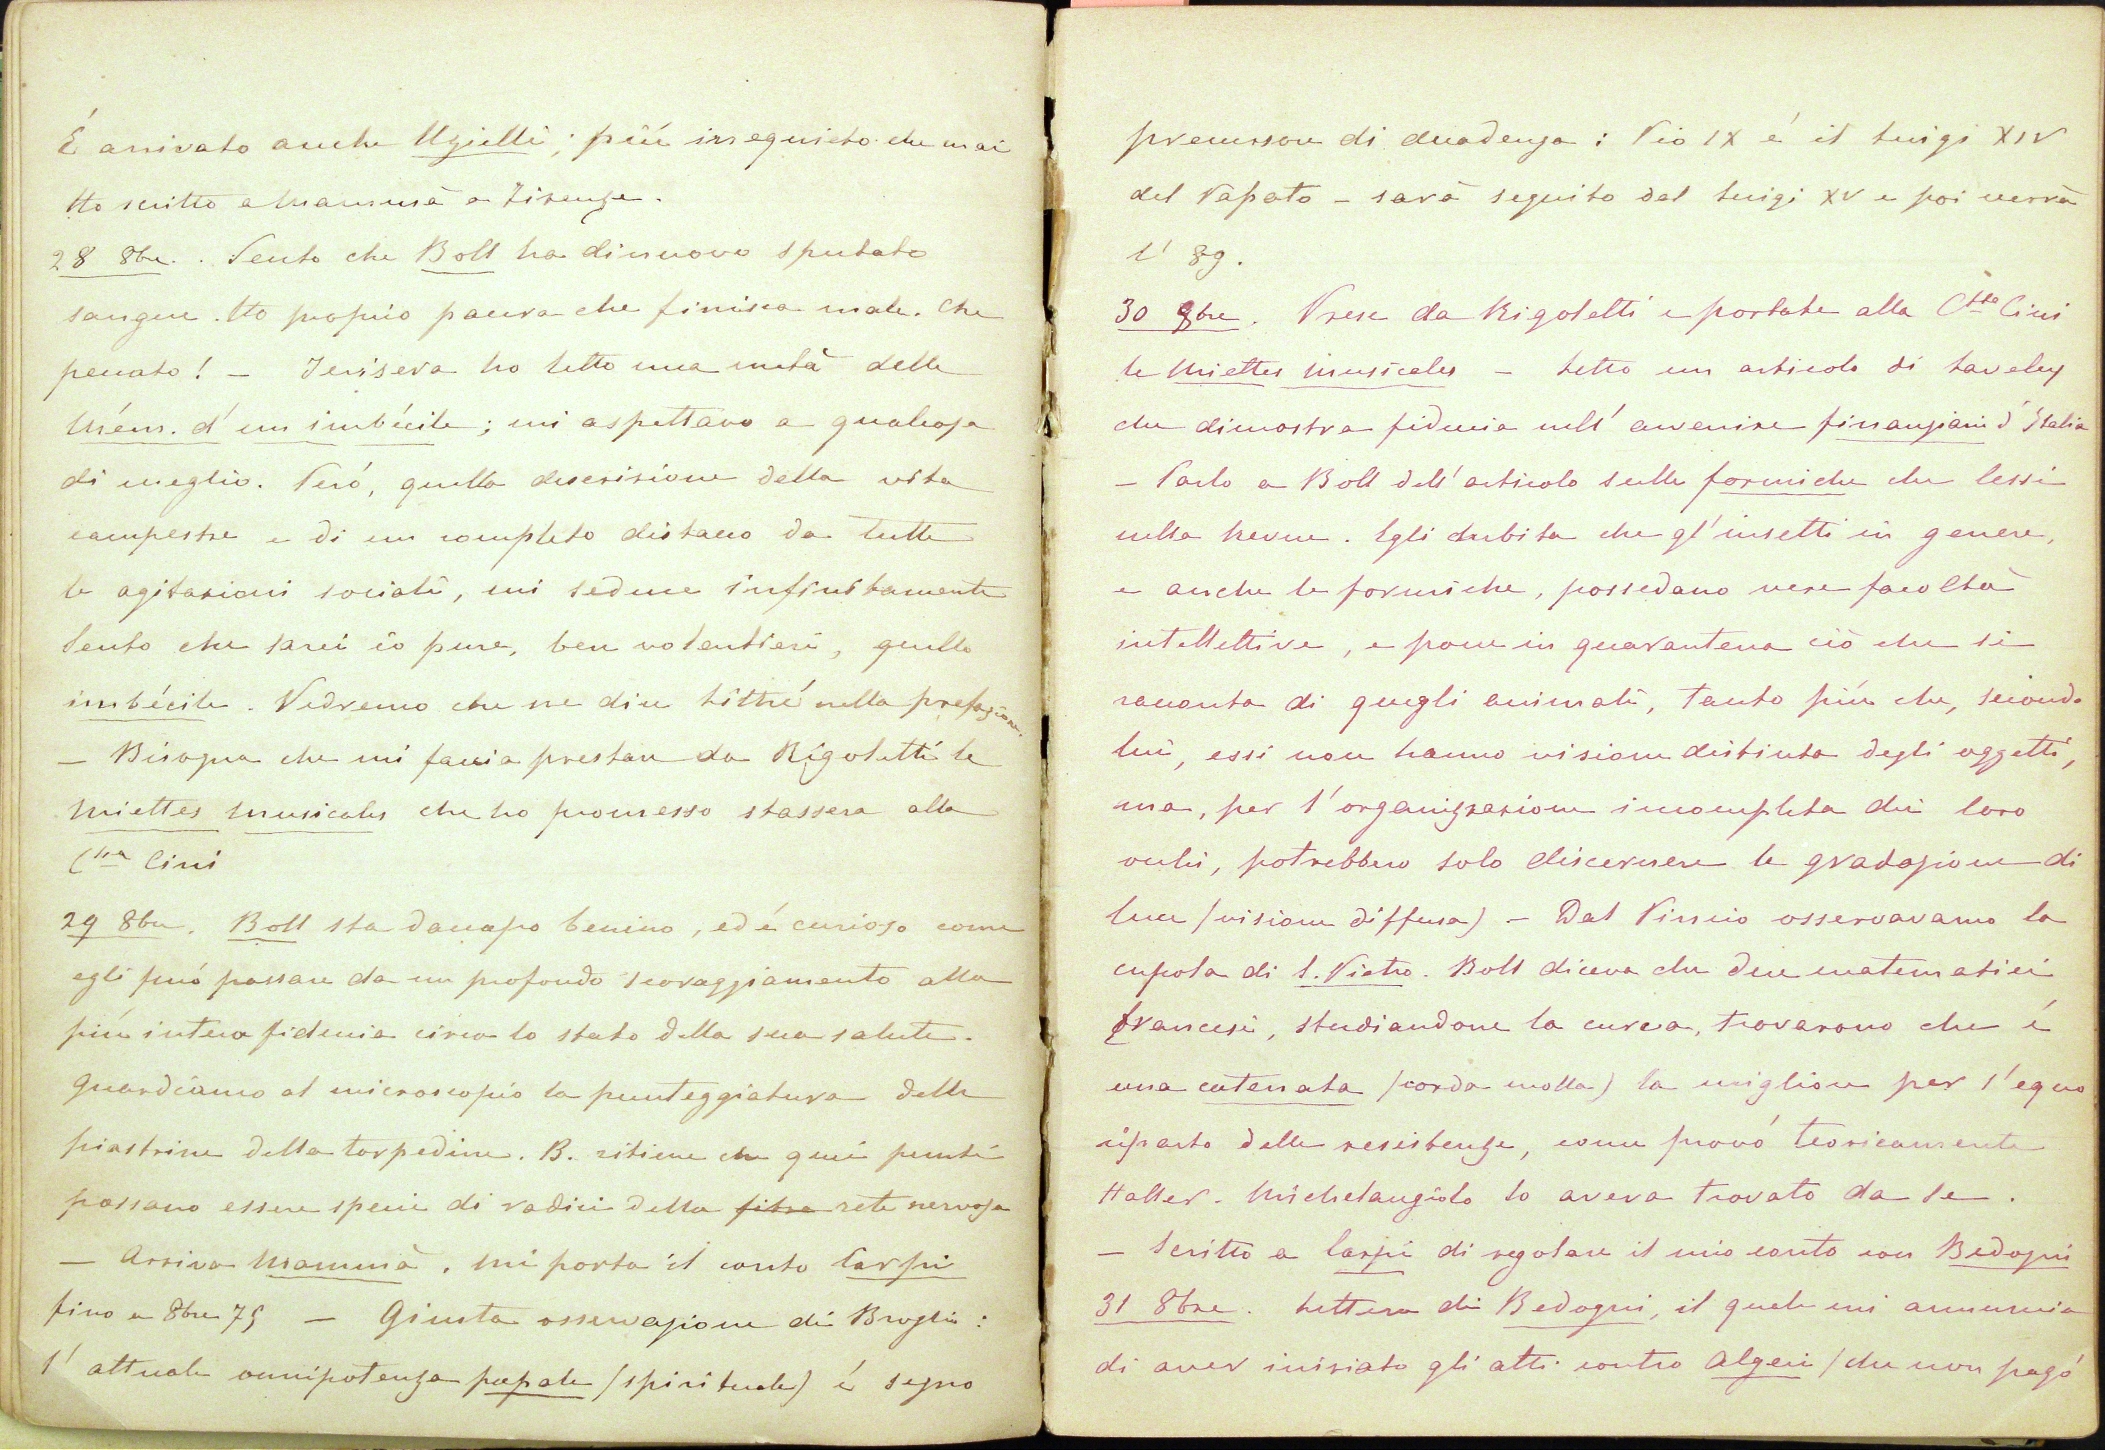 É arrivato anche Uzielli; più irrequieto che mai
Ho scritto a Mammà a Firenze.
28 8bre. Sento che Boll ha dinuovo sputato
sangue. Ho proprio paura che finisca male. Che
peccato! – Jerisera ho letto una metà delle
Mém. d'un imbécile; mi aspettavo a qualcosa
di meglio. Però, quella descrizione della vita
campestre e di un completo distacco da tutte
le agitazioni sociali, mi seduce infinitamente
Sento che sarei io pure, ben volentieri, quello
imbécile. Vedremo che ne dice Littré nella prefazione.
– Bisogna che mi faccia prestare da Rigoletti le
Miettes musicales che ho promesso stassera alla
Ctssa Cini
29 8bre. Boll sta dacapo benino, ed é curioso come
egli può passare da un profondo scoraggiamento alla
più intera fiducia circa lo stato della sua salute.
Guardiamo al microscopio la punteggiatura delle
piastrine della torpedine. B. ritiene che quei punti
possano essere specie di radici della fibra rete nervosa
– Arriva Mammà. Mi porta il conto Carpi
fino a 8bre 75 – Giusta osservazione di Broglio:
l'attuale onnipotenza papale (spirituale) é segno
precursore di decadenza: Pio IX é il Luigi XIV
del Papato – sarà seguito dal Luigi XV e poi verrà
l' 89.
30 8bre. Prese da Rigoletti e portate alla Ctssa Cini
le Miettes musicales – Letto un articolo di Laveley
che dimostra fiducia nell'avvenire finanziario d'Italia
– Parlo a Boll dell'articolo sulle formiche che lessi
nella Revue. Egli dubita che gl'insetti in genere,
e anche le formiche, possedano vere facoltà
intellettive, e pone in quarantena ciò che si
racconta di quegli animali, tanto più che, secondo
lui, essi non hanno visione distinta degli oggetti,
ma, per l'organizzazione incompleta dei loro
occhi, potrebbero solo discernere le gradazione di
luce (visione diffusa) – Dal Pincio osservavamo la
cupola di S. Pietro. Boll diceva che due matematici
francesi, studiandone la curva, trovarono che é
una catenata (corda molla) la migliore per l'equo
riparto delle resistenze, come provò teoricamente
Haller. Michelangiolo lo aveva trovato da se.
– Scritto a Carpi di regolare il mio conto con Bedogni
31 8bre. Lettera di Bedogni, il quale mi annuncia
di aver iniziato gli atti contro Algeri (che non pagò